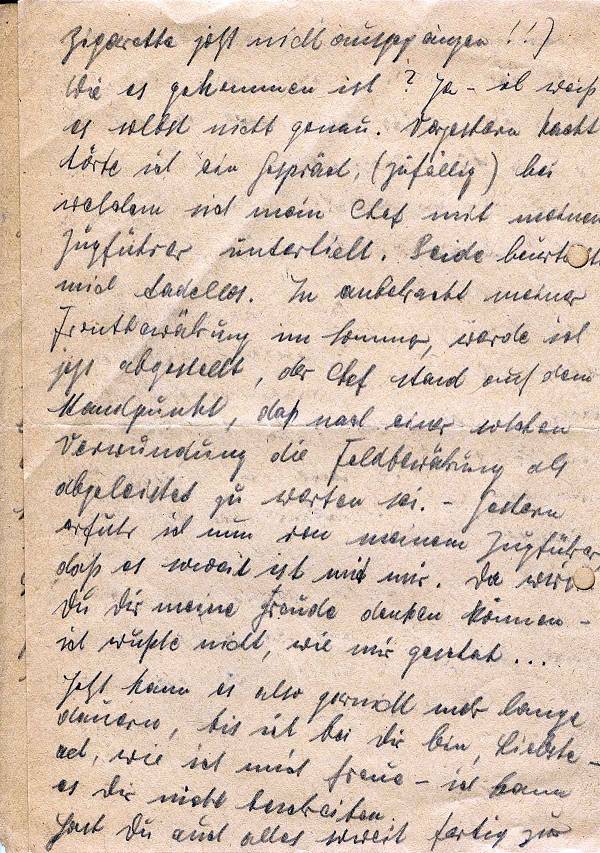 Zigarette jetzt nicht ausgegangen!!)
Wie es gekommen ist? Ja - ich weiß
es selbst nicht genau. Vorgestern Nacht
hörte ich ein Gespräch, (zufällig) bei
welchem sich mein Chef mit meinem
Zugführer unterhielt. Beide
mich tadellos. In anbetracht meiner
Frontbewährung im Sommer, werde ich
jetzt abgestellt, der Chef stand auf dem
Standpunkt, daß nach einer solchen
Verwundung die Feldbewährung als
abgeleistet zu werten sei. - Gestern
erfuhr ich nun von meinem Zugführer,
daß es soweit ist mit mir. Da wirst
Du Dir meine Freude denken können -
ich wußte nicht, wie mir geschah ...
Jetzt kann es also garnicht mehr lange
dauern, bis ich bei Dir bin, Liebste -
ach, wie ich mich freue - ich kann
es Dir nicht beschreiben.
Hast Du auch alles soweit fertig zur